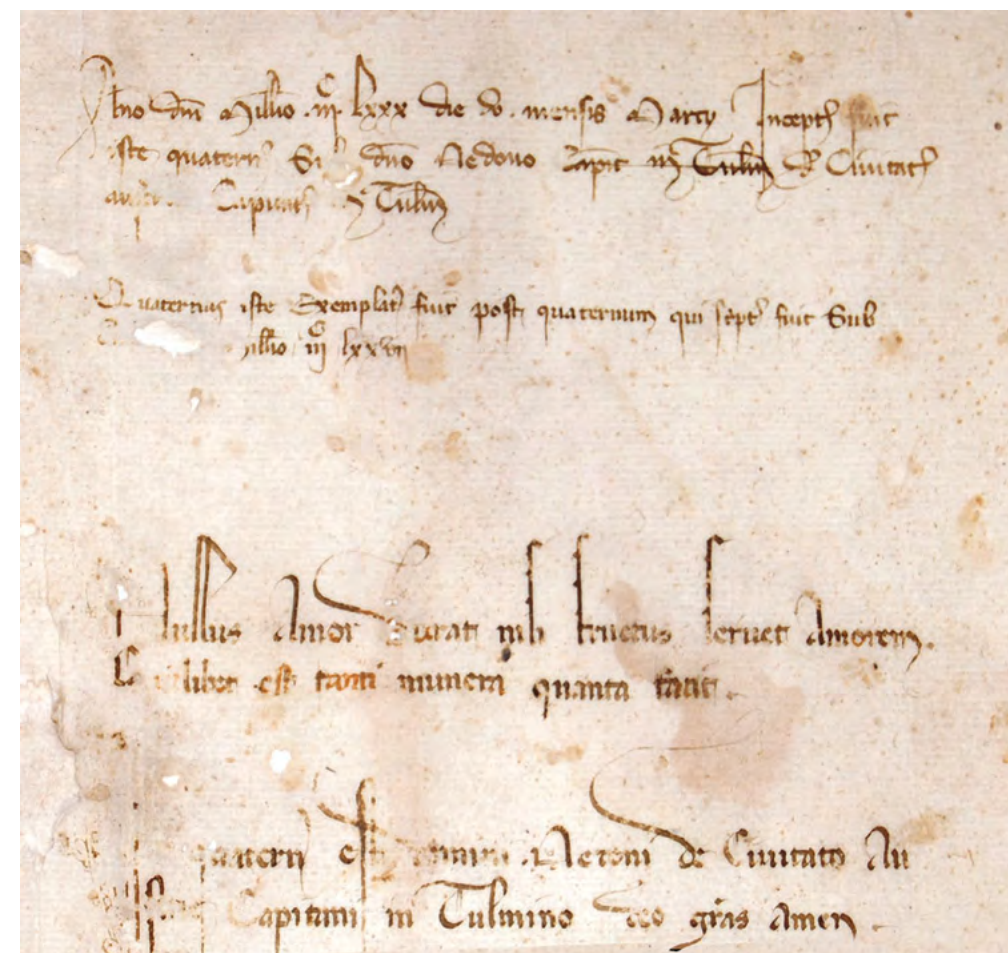 Anno dni Millio iijc lxxx die do. mensis Marcij Incept fuit
iste quatern Sub dno Nedono Capit in Tulm de Civitat
Capitat in Tulm
Quaternus iste Exemplat fuit post quaternum qui script fuit Sub
millio iijc lxxvij
Nullus Amor durat nisi fructus servet Amorem.
Quilibet est tanti munera quanta facit.
quatern est domini Neconi de Civitate Au
Capitanei in Tulmino deo gras Amen.